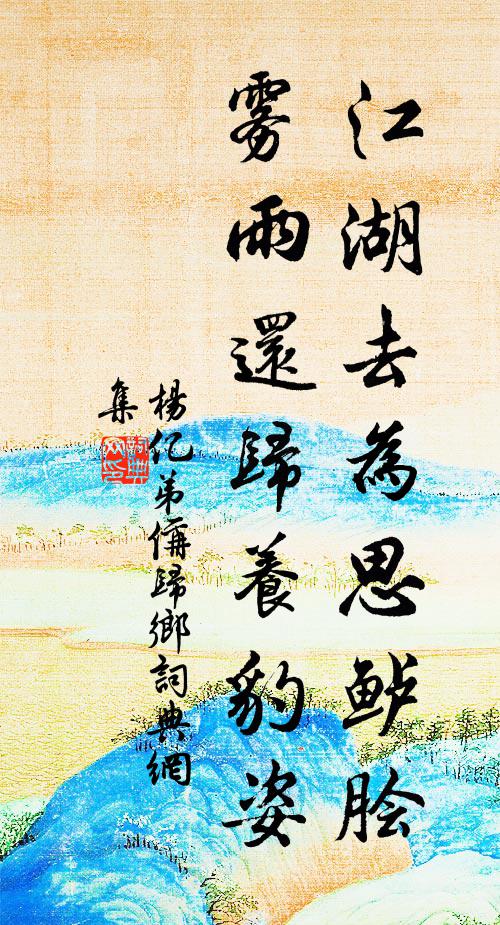 江湖去為思鲈脍
雾雨還歸養豹姿
楊亿弟倚歸鄉詞典網
集